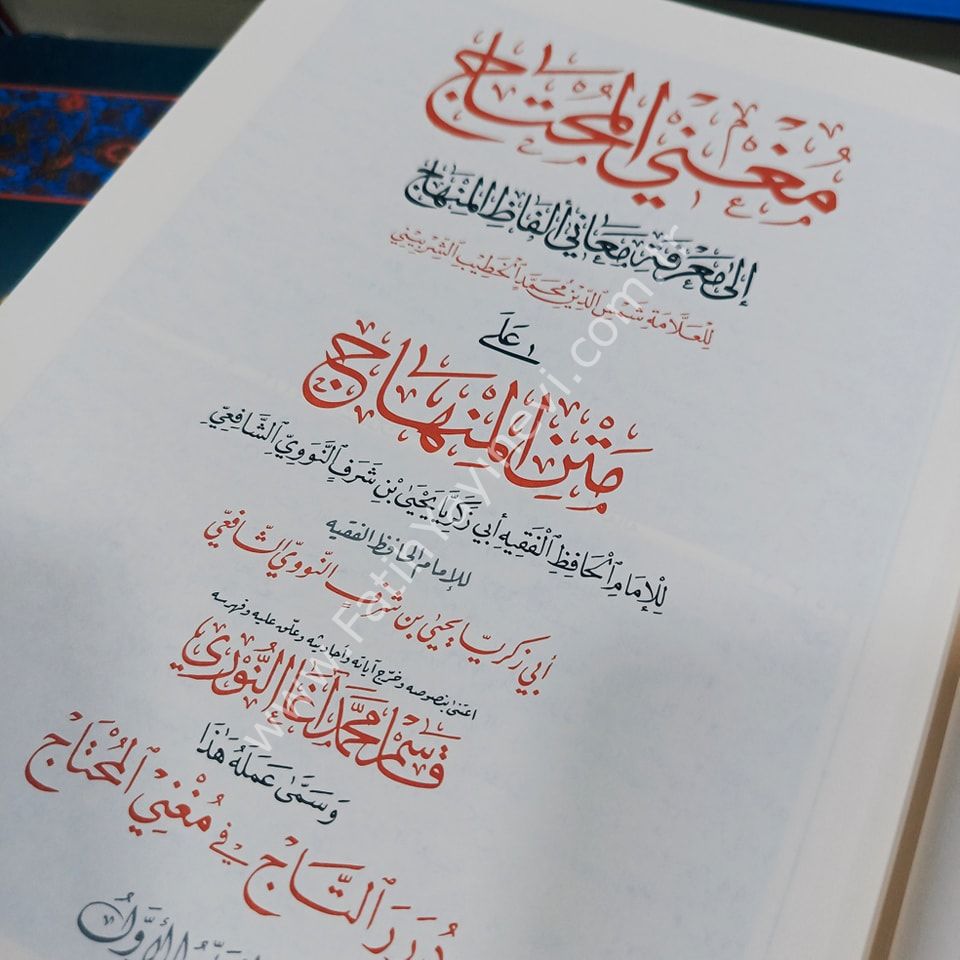 مُغْنِي المُحْتَاج
إِلَىٰ مَعْرِفَةِ مَعَانِي أَلْفَاظِ المِنْهَاج
لِلعَلَّامَةِ شَمْسِ الدِّينِ مُحَمَّدٍ الخَطِيبِ الشِّرْبِينِيِّ
عَلَىٰ
مَتْنِ المِنْهَاج
لِلإِمَامِ الحَافِظِ الْفَقِيهِ أَبِي زَكَرِيَّا يَحْيَىٰ بْنِ شَرَفٍ النَّوَوِيِّ الشَّافِعِيِّ
للإمام الحافظ الفقيه
أبي زكريّا يحيىٰ بن شرفٍ النّوويّ الشّافعيّ
اعتنىٰ بنصوصه وخرّج آياته وأحاديثه وعلّق عليه وفهرسه
قَاسِم مُحَمَّد آغَا النُّورِي
وَسَمَّىٰ عَمَلَهُ هَٰذَا
دُرَرَ التَّاجْ فِي مُغْنِي المُحْتَاجْ
الأَوَّلُ
www.FatihYayinevi.com.tr